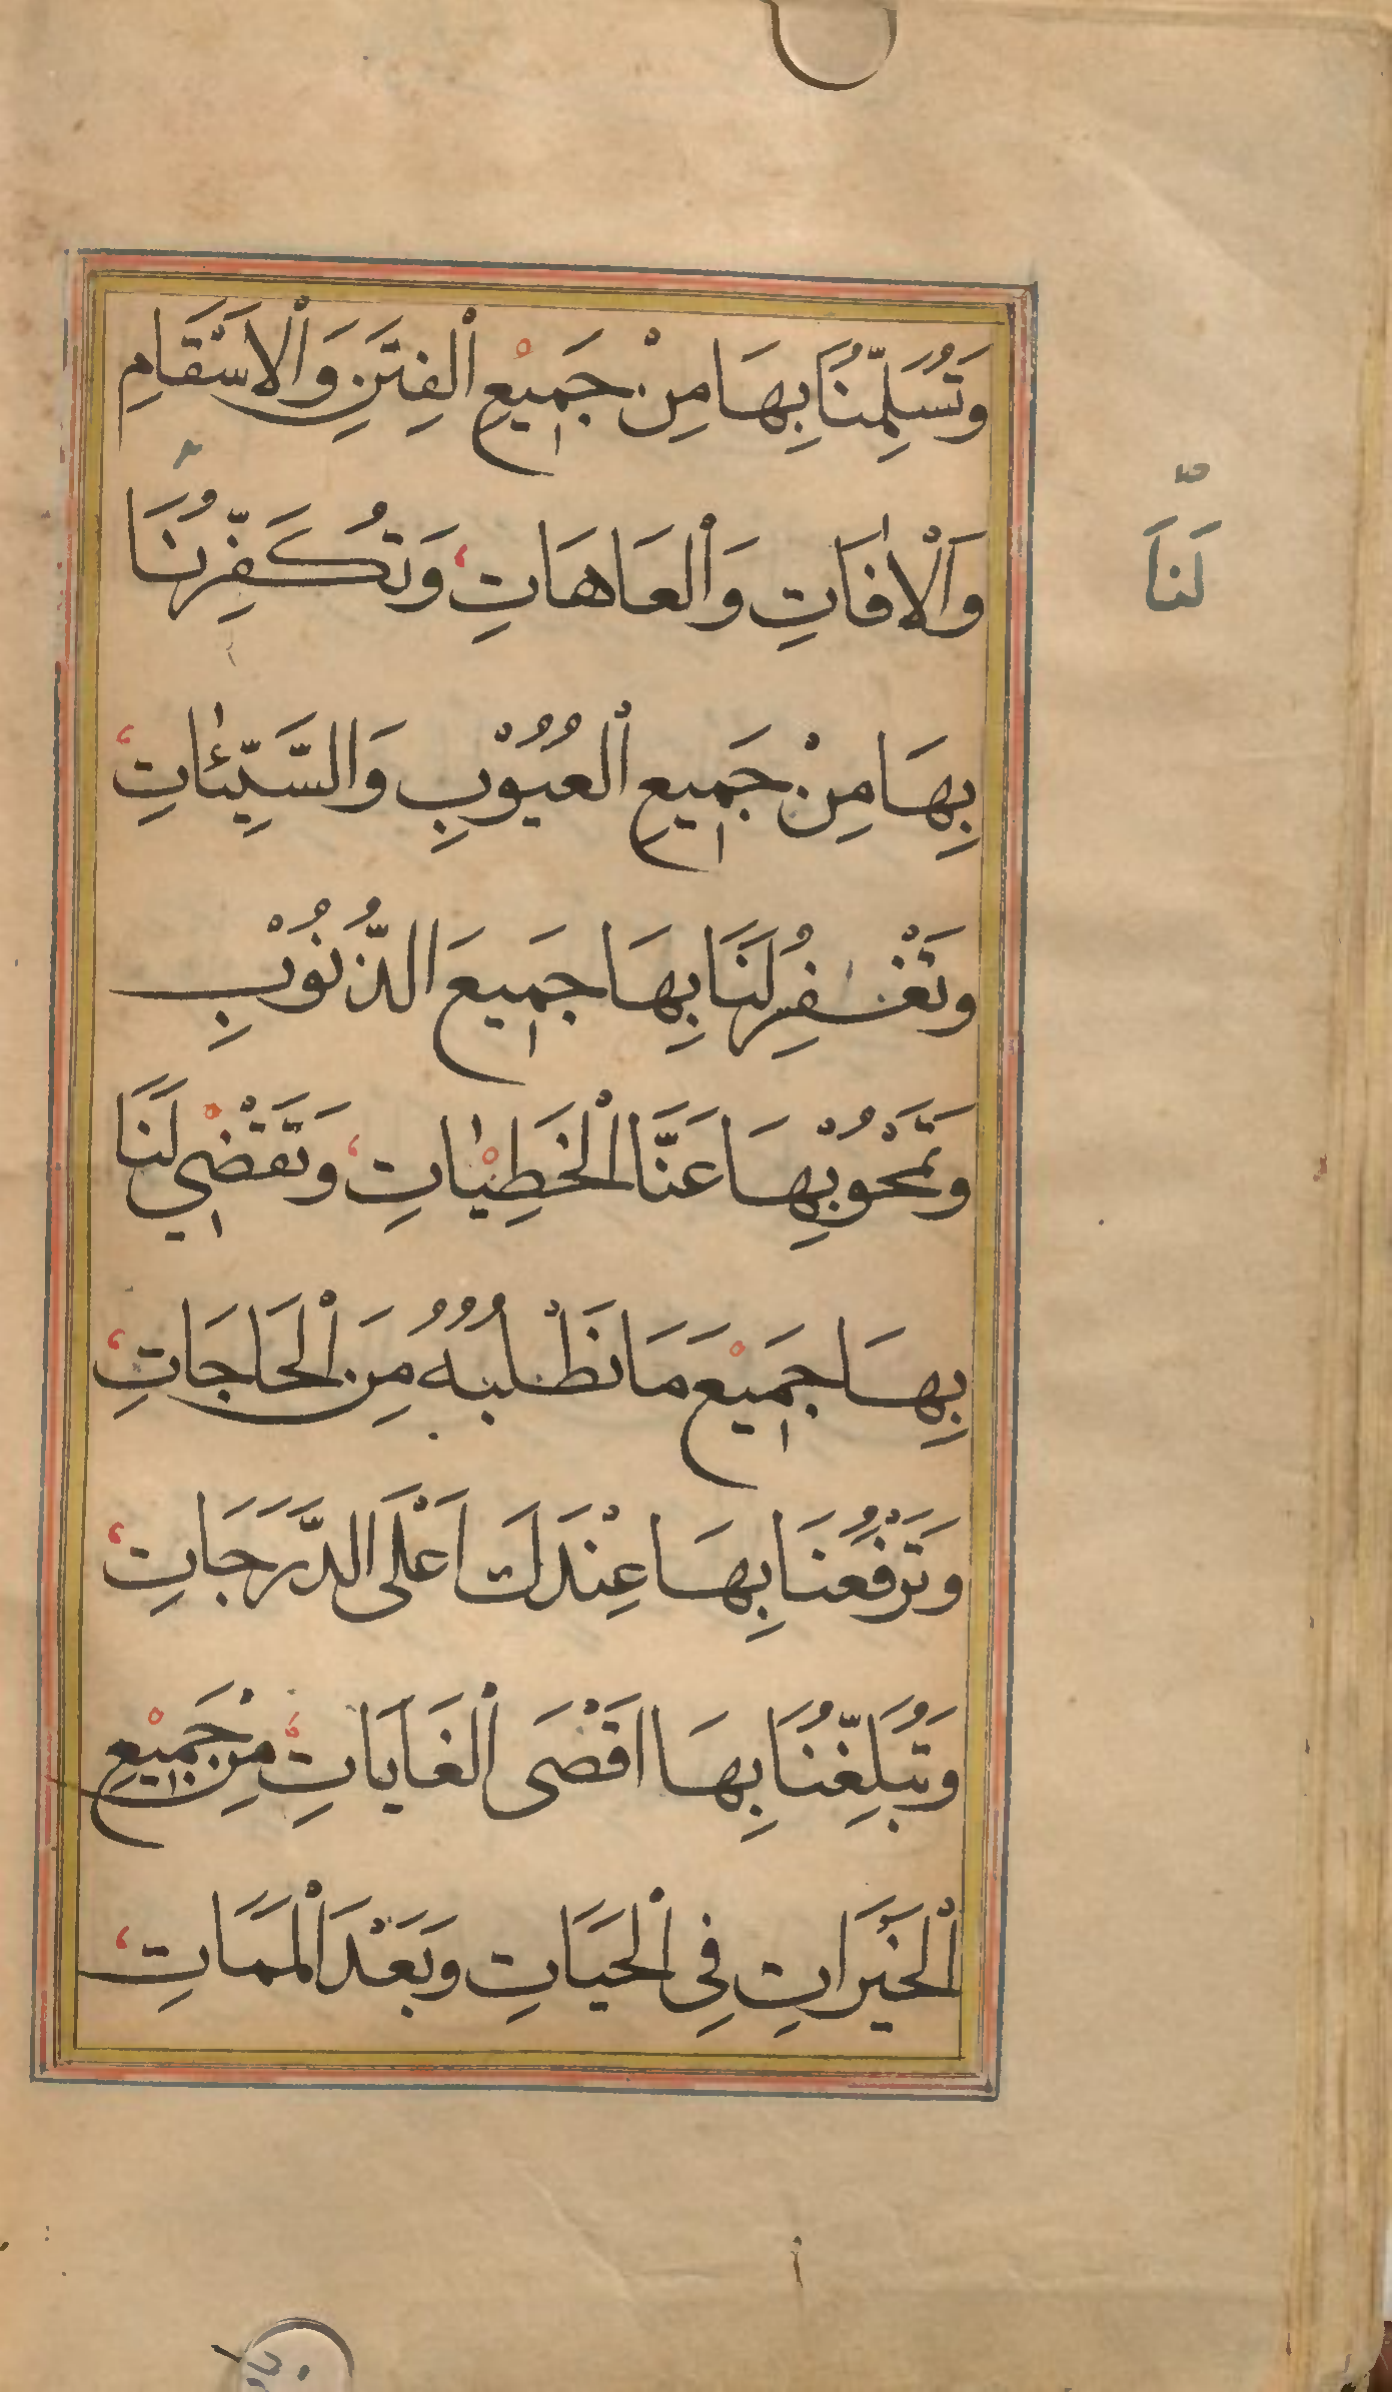 وَتُسَلِّمُنَا بِهَا مِنْ جَمِيْعِ الْفِتَنِ وَالْاَسْقَامِ
وَالْاٰفَاتِ وَالْعَاهَاتِ وَتُكَفِّرُنَا
لَنَا
بِهَا مِنْ جَمِيعِ الْعُيُوْبِ وَالسَّيِّئٰاتِ
وَتَغْفِرُ لَنَا بِهَا جَمِيعَ الذُّنُوْبِ
وَتَمْحُوْ بِهَا عَنَّا الْخَطِيْئٰاتِ وَتَقْضِيْ لَنَا
بِهَا جَمِيْعَ مَا نَطْلُبُهُ مِنَ الْحَاجَاتِ
وَتَرْفَعُنَا بِهَا عِنْدَكَ اَعْلَى الدَّرَجَاتِ
وَتُبَلِّغُنَا بِهَا اَقْصَى الْغَايَاتِ مِنْ جَمِيْعِ
الْخَيْرَاتِ فِي الْحَيَاتِ وَبَعْدَ الْمَمَاتِ